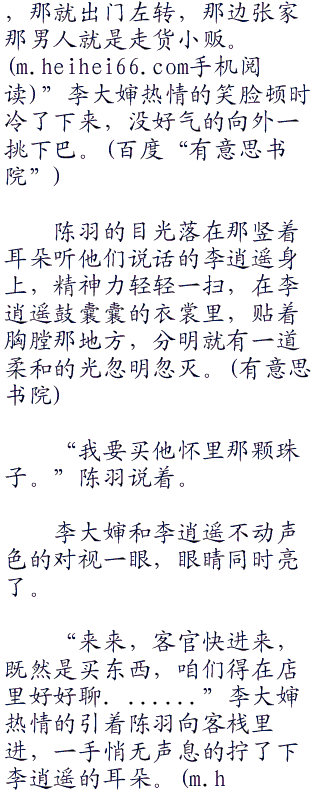 ，那就出门左转，那边张家
那男人就是走货小贩。
(m.heihei66.com手机阅
读)”李大婶热情的笑脸顿时
冷了下来，没好气的向外一
挑下巴。(百度“有意思书
院”)
陈羽的目光落在那竖着
耳朵听他们说话的李逍遥身
上，精神力轻轻一扫，在李
逍遥鼓囊囊的衣裳里，贴着
胸膛那地方，分明就有一道
柔和的光忽明忽灭。(有意思
书院)
“我要买他怀里那颗珠
子。”陈羽说着。
李大婶和李逍遥不动声
色的对视一眼，眼睛同时亮
了。
“来来，客官快进来，
既然是买东西，咱们得在店
里好好聊．......”李大婶
热情的引着陈羽向客栈里
进，一手悄无声息的拧了下
李逍遥的耳朵。(m.h